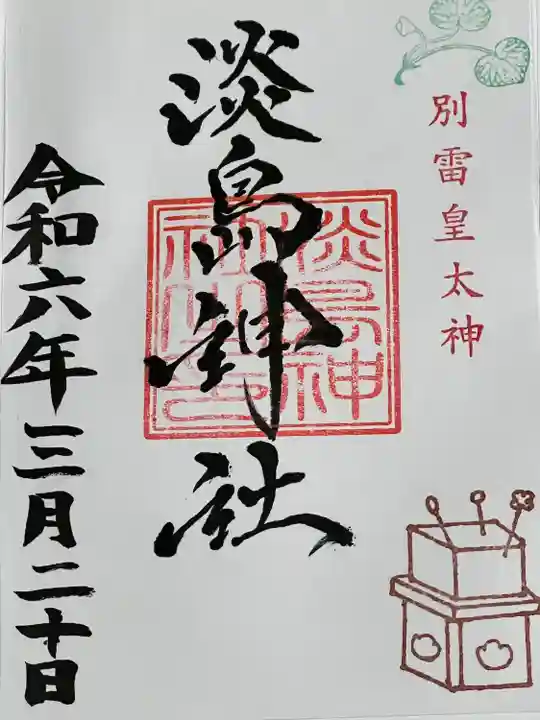 別雷皇太神
淡島神社
淡島神
社之印
令和六年三月二十日